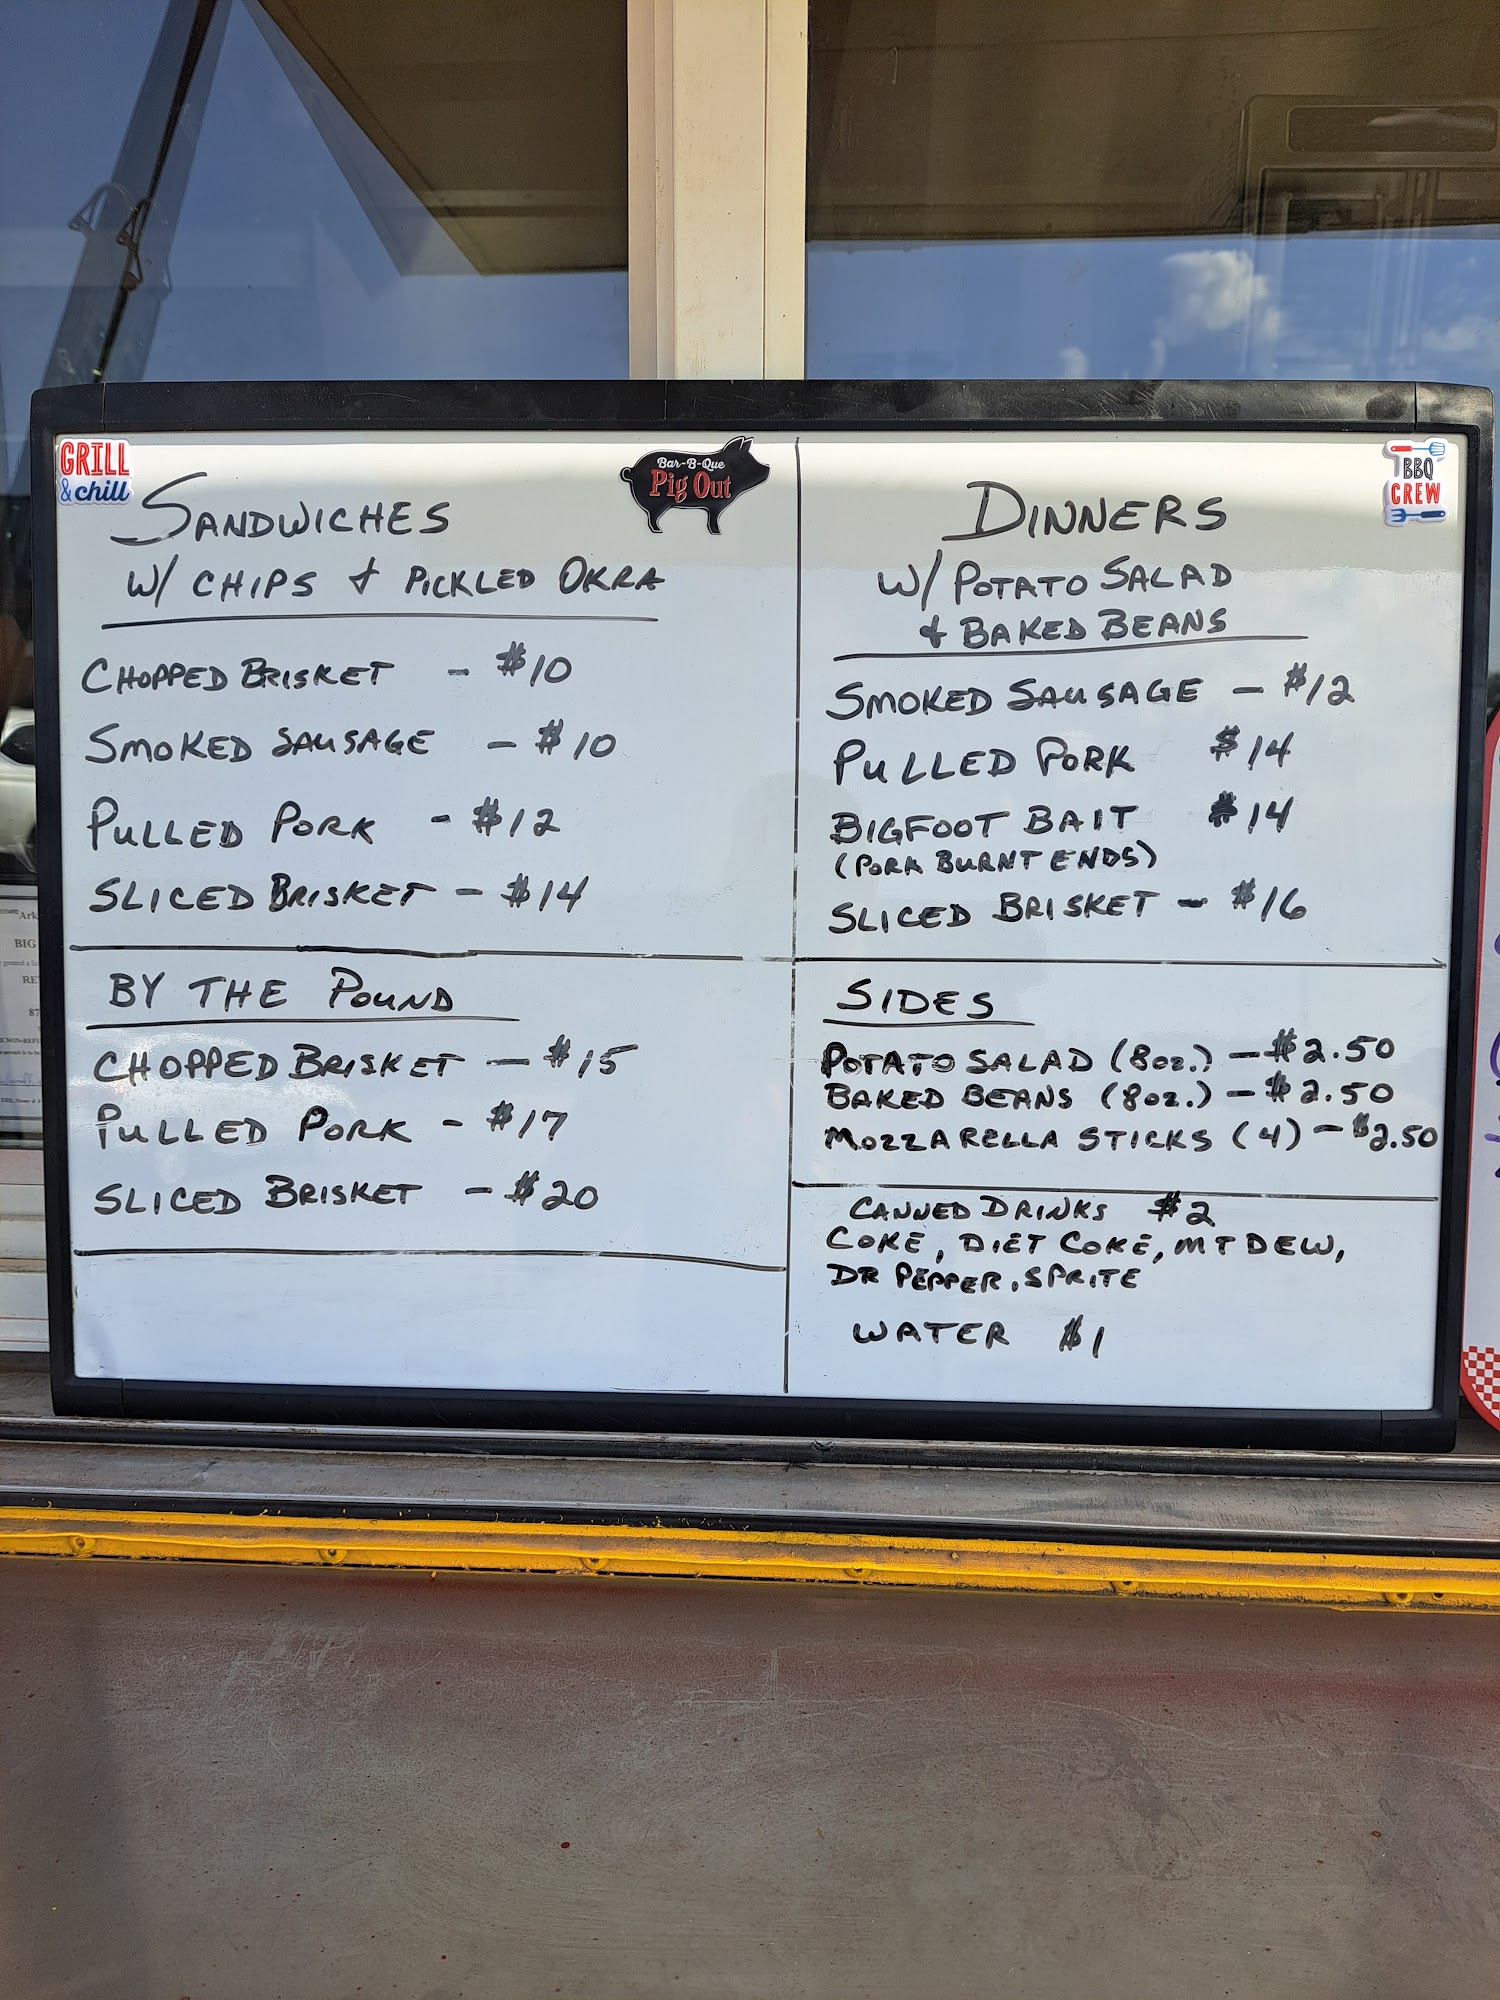 GRILL
& chill
Bar-B-Que
Pig Out
BBQ
CREW
SANDWICHES
W/ CHIPS & PICKLED OKRA
CHOPPED BRISKET - $10
SMOKED SAUSAGE - $10
PULLED PORK - $12
SLICED BRISKET - $14
BY THE POUND
CHOPPED BRISKET - $15
PULLED PORK - $17
SLICED BRISKET - $20
DINNERS
W/ POTATO SALAD
& BAKED BEANS
SMOKED SAUSAGE - $12
PULLED PORK $14
BIGFOOT BAIT $14
(PORK BURNT ENDS)
SLICED BRISKET - $16
SIDES
POTATO SALAD (8oz.) - $2.50
BAKED BEANS (8oz.) - $2.50
MOZZARELLA STICKS (4) - $2.50
CANNED DRINKS $2
COKE, DIET COKE, MT DEW,
DR PEPPER, SPRITE
WATER $1
BIG